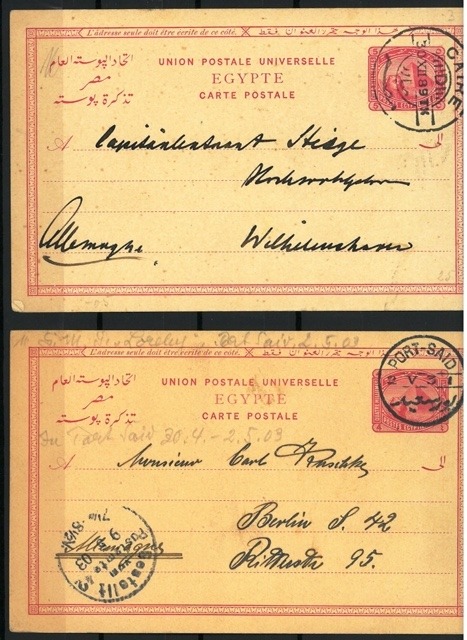 L'adresse seule doit être écrite de ce côté.
UNION POSTALE UNIVERSELLE
EGYPTE
CARTE POSTALE
اتحاد البوستة العام
مصر
تذكرة بوستة
CAIRE
A
الى
Capitänlieutenant
Hochwohlgeboren
Allemagne.
Wilhelmshaven
S.M.S. Loreley Port Said 2.5.03
L'adresse seule doit être écrite de ce côté.
PORT-SAID
UNION POSTALE UNIVERSELLE
EGYPTE
CARTE POSTALE
اتحاد البوستة العام
مصر
تذكرة بوستة
In Port Said 30.4.-2.5.03
A
الى
Monsieur Carl
Berlin S. 42
Allemagne
Ritterstr 95.
Bestellt
Postamte